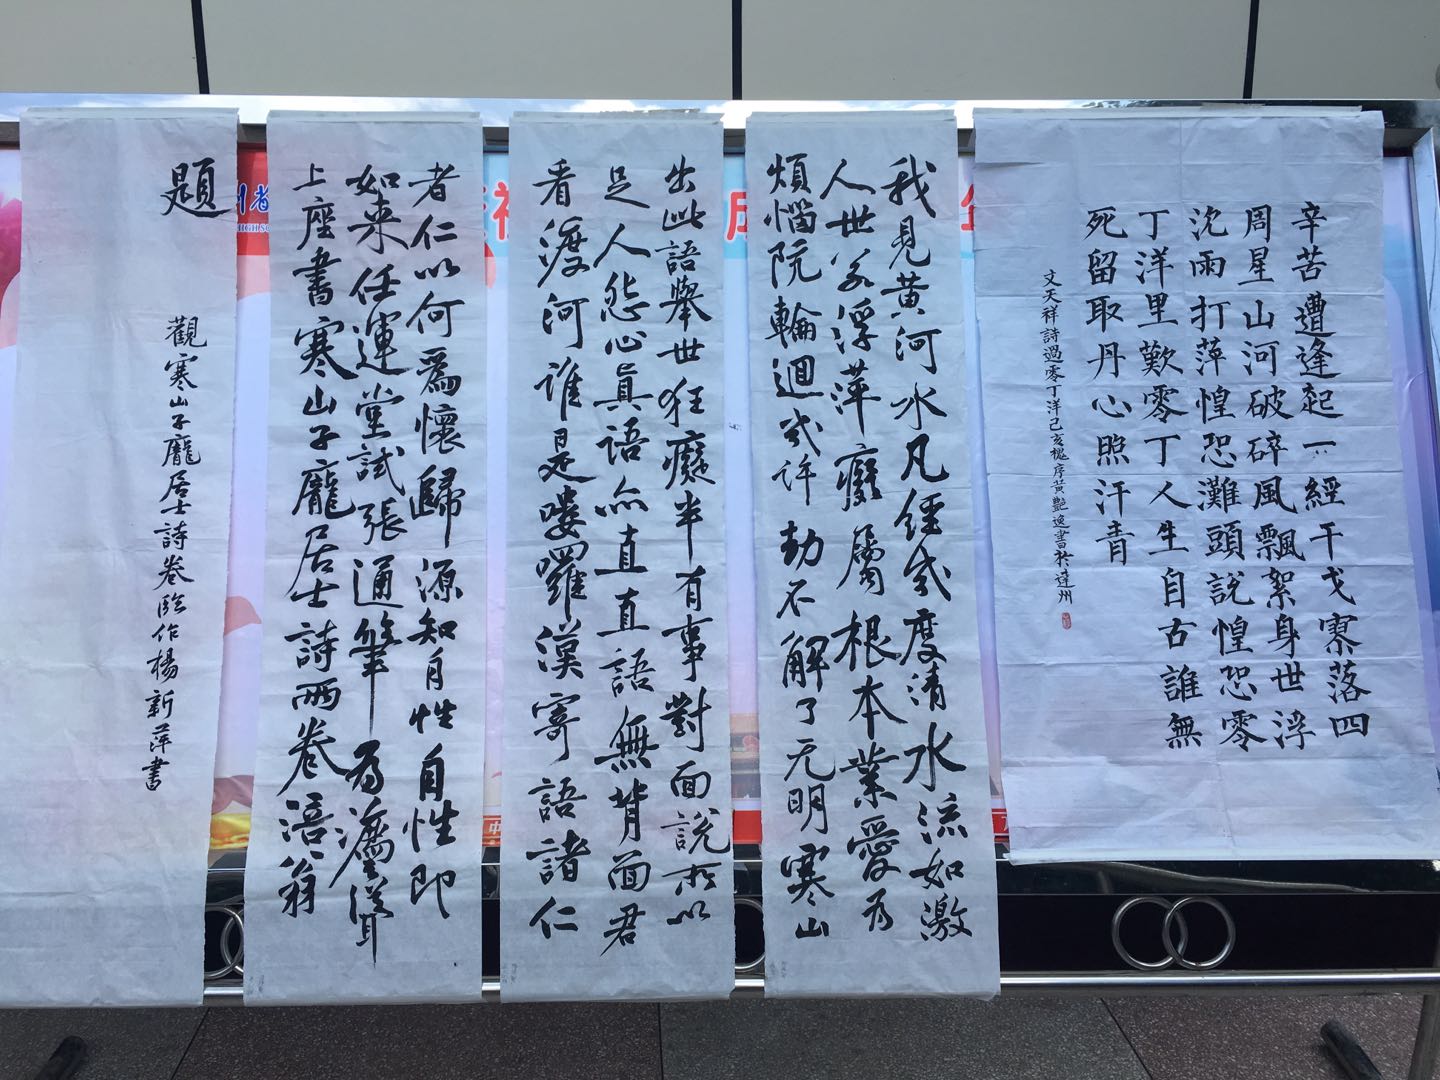 辛苦遭逢起一經干戈寥落四
周星山河破碎風飄絮身世浮
沈雨打萍惶恐灘頭說惶恐零
丁洋里歎零丁人生自古誰無
死留取丹心照汗青
文天祥詩過零丁洋己亥槐序黃艷逸書於達州
我見黃河水凡經幾度清水流如激
人世若浮萍癡屬根本業愛為
煩惱阮輪迴幾許劫不解了无明寒山
出此語舉世狂癡半有事對面說所以
足人怨心真語亦直直語無背面君
看渡河誰是嘍囉漢寄語諸仁
者仁以何為懷歸源知自性自性即
如來任運堂試張通筆為灋聳
上座書寒山子龐居士詩兩卷涪翁
題
觀寒山子龐居士詩卷臨作楊新萍書